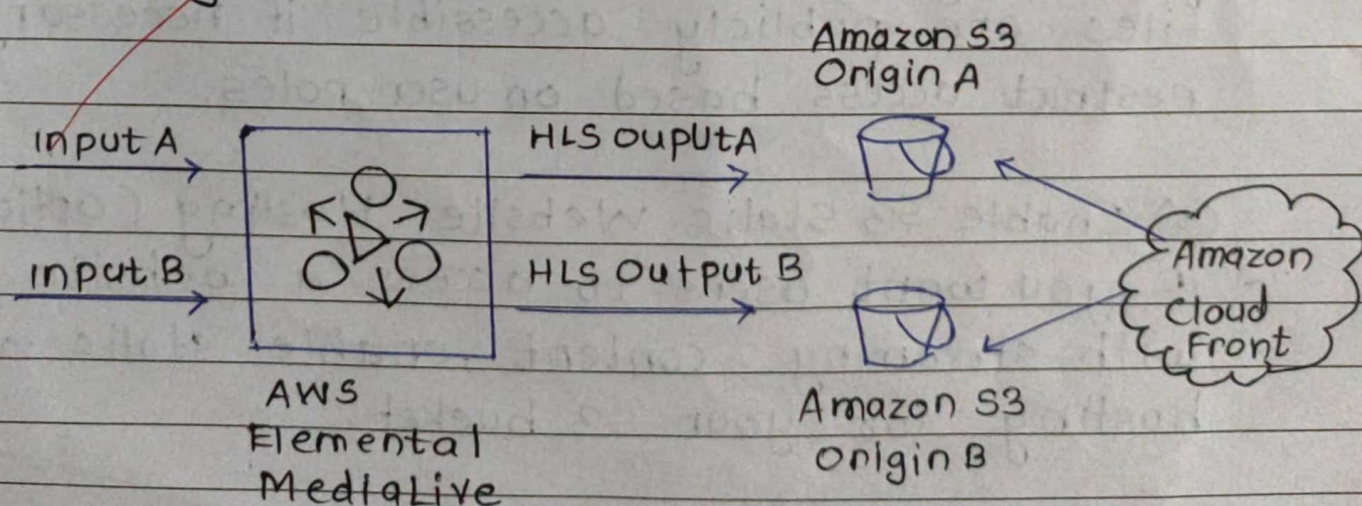 Amazon S3
Origin A
Input A
HLS OuputA
Input B
HLS Output B
Amazon
Cloud
Front
AWS
Elemental
MediaLive
Amazon S3
Origin B